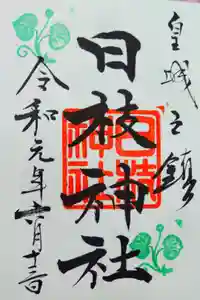 皇城之鎮
日枝神社
日枝
神社
令和元年 月十三日